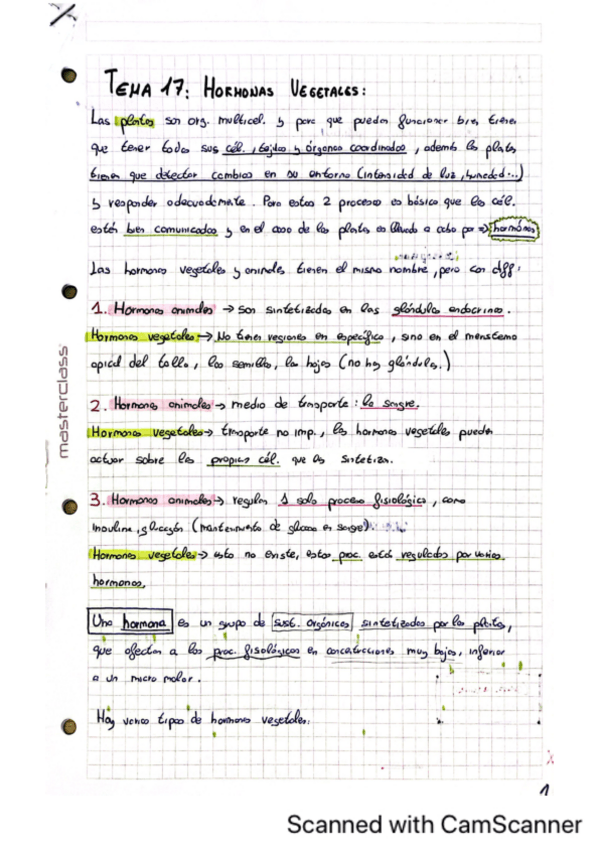 TEMA 17: HORMONAS VEGETALES:
Las plantas son org. multicel. y para que puedan funcionar bien tienen
que tener todas sus cél., tejidos y órganos coordinados, además las plantas
tienen que detectar cambios en su entorno (intensidad de luz, humedad...)
y responder adecuadamente. Para estos 2 procesos es básico que las cél.
estén bien comunicadas y en el caso de las plantas es llevado a cabo por => hormonas
Las hormonas vegetales y animales tienen el mismo nombre, pero con diff:
1. Hormonas animales → son sintetizadas en las glándulas endocrinas.
Hormonas vegetales → No tienen regiones en específico, sino en el meristemo
apical del tallo, las semillas, las hojas (no hay glándulas.)
2. Hormonas animales → medio de transporte: la sangre.
Hormonas vegetales → transporte no imp., las hormonas vegetales pueden
actuar sobre las propias cél. que las sintetizan.
3. Hormonas animales → regulan 1 solo proceso fisiológico, como
insulina, glucagón (mantenimiento de glucosa en sangre).
Hormonas vegetales → esto no existe, estos proc. están regulados por varias
hormonas.
Una hormona es un grupo de sust. orgánicas sintetizadas por las plantas,
que afectan a los proc. fisiológicos en concentraciones muy bajas, inferior
a un micro molar.
Hay varios tipos de hormonas vegetales:
masterclass
1
Scanned with CamScanner